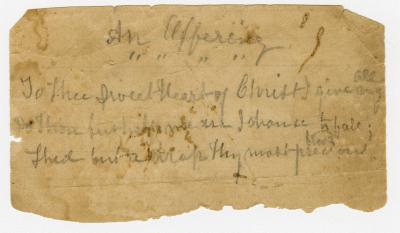 An Offering
" " " "
To Thee Sweet Heart of Christ I give all
Thou help me I chance to fall;
Shed but a drop Thy most precious